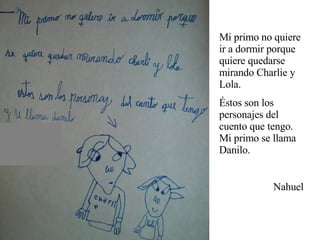 Mi primo no quiere ir a dormir porque
se quiere quedar mirando charli y lola
estos son los personaj del cuento que tengo
y se llama danilo
charli
Mi primo no quiere
ir a dormir porque
quiere quedarse
mirando Charlie y
Lola.
Éstos son los
personajes del
cuento que tengo.
Mi primo se llama
Danilo.
Nahuel